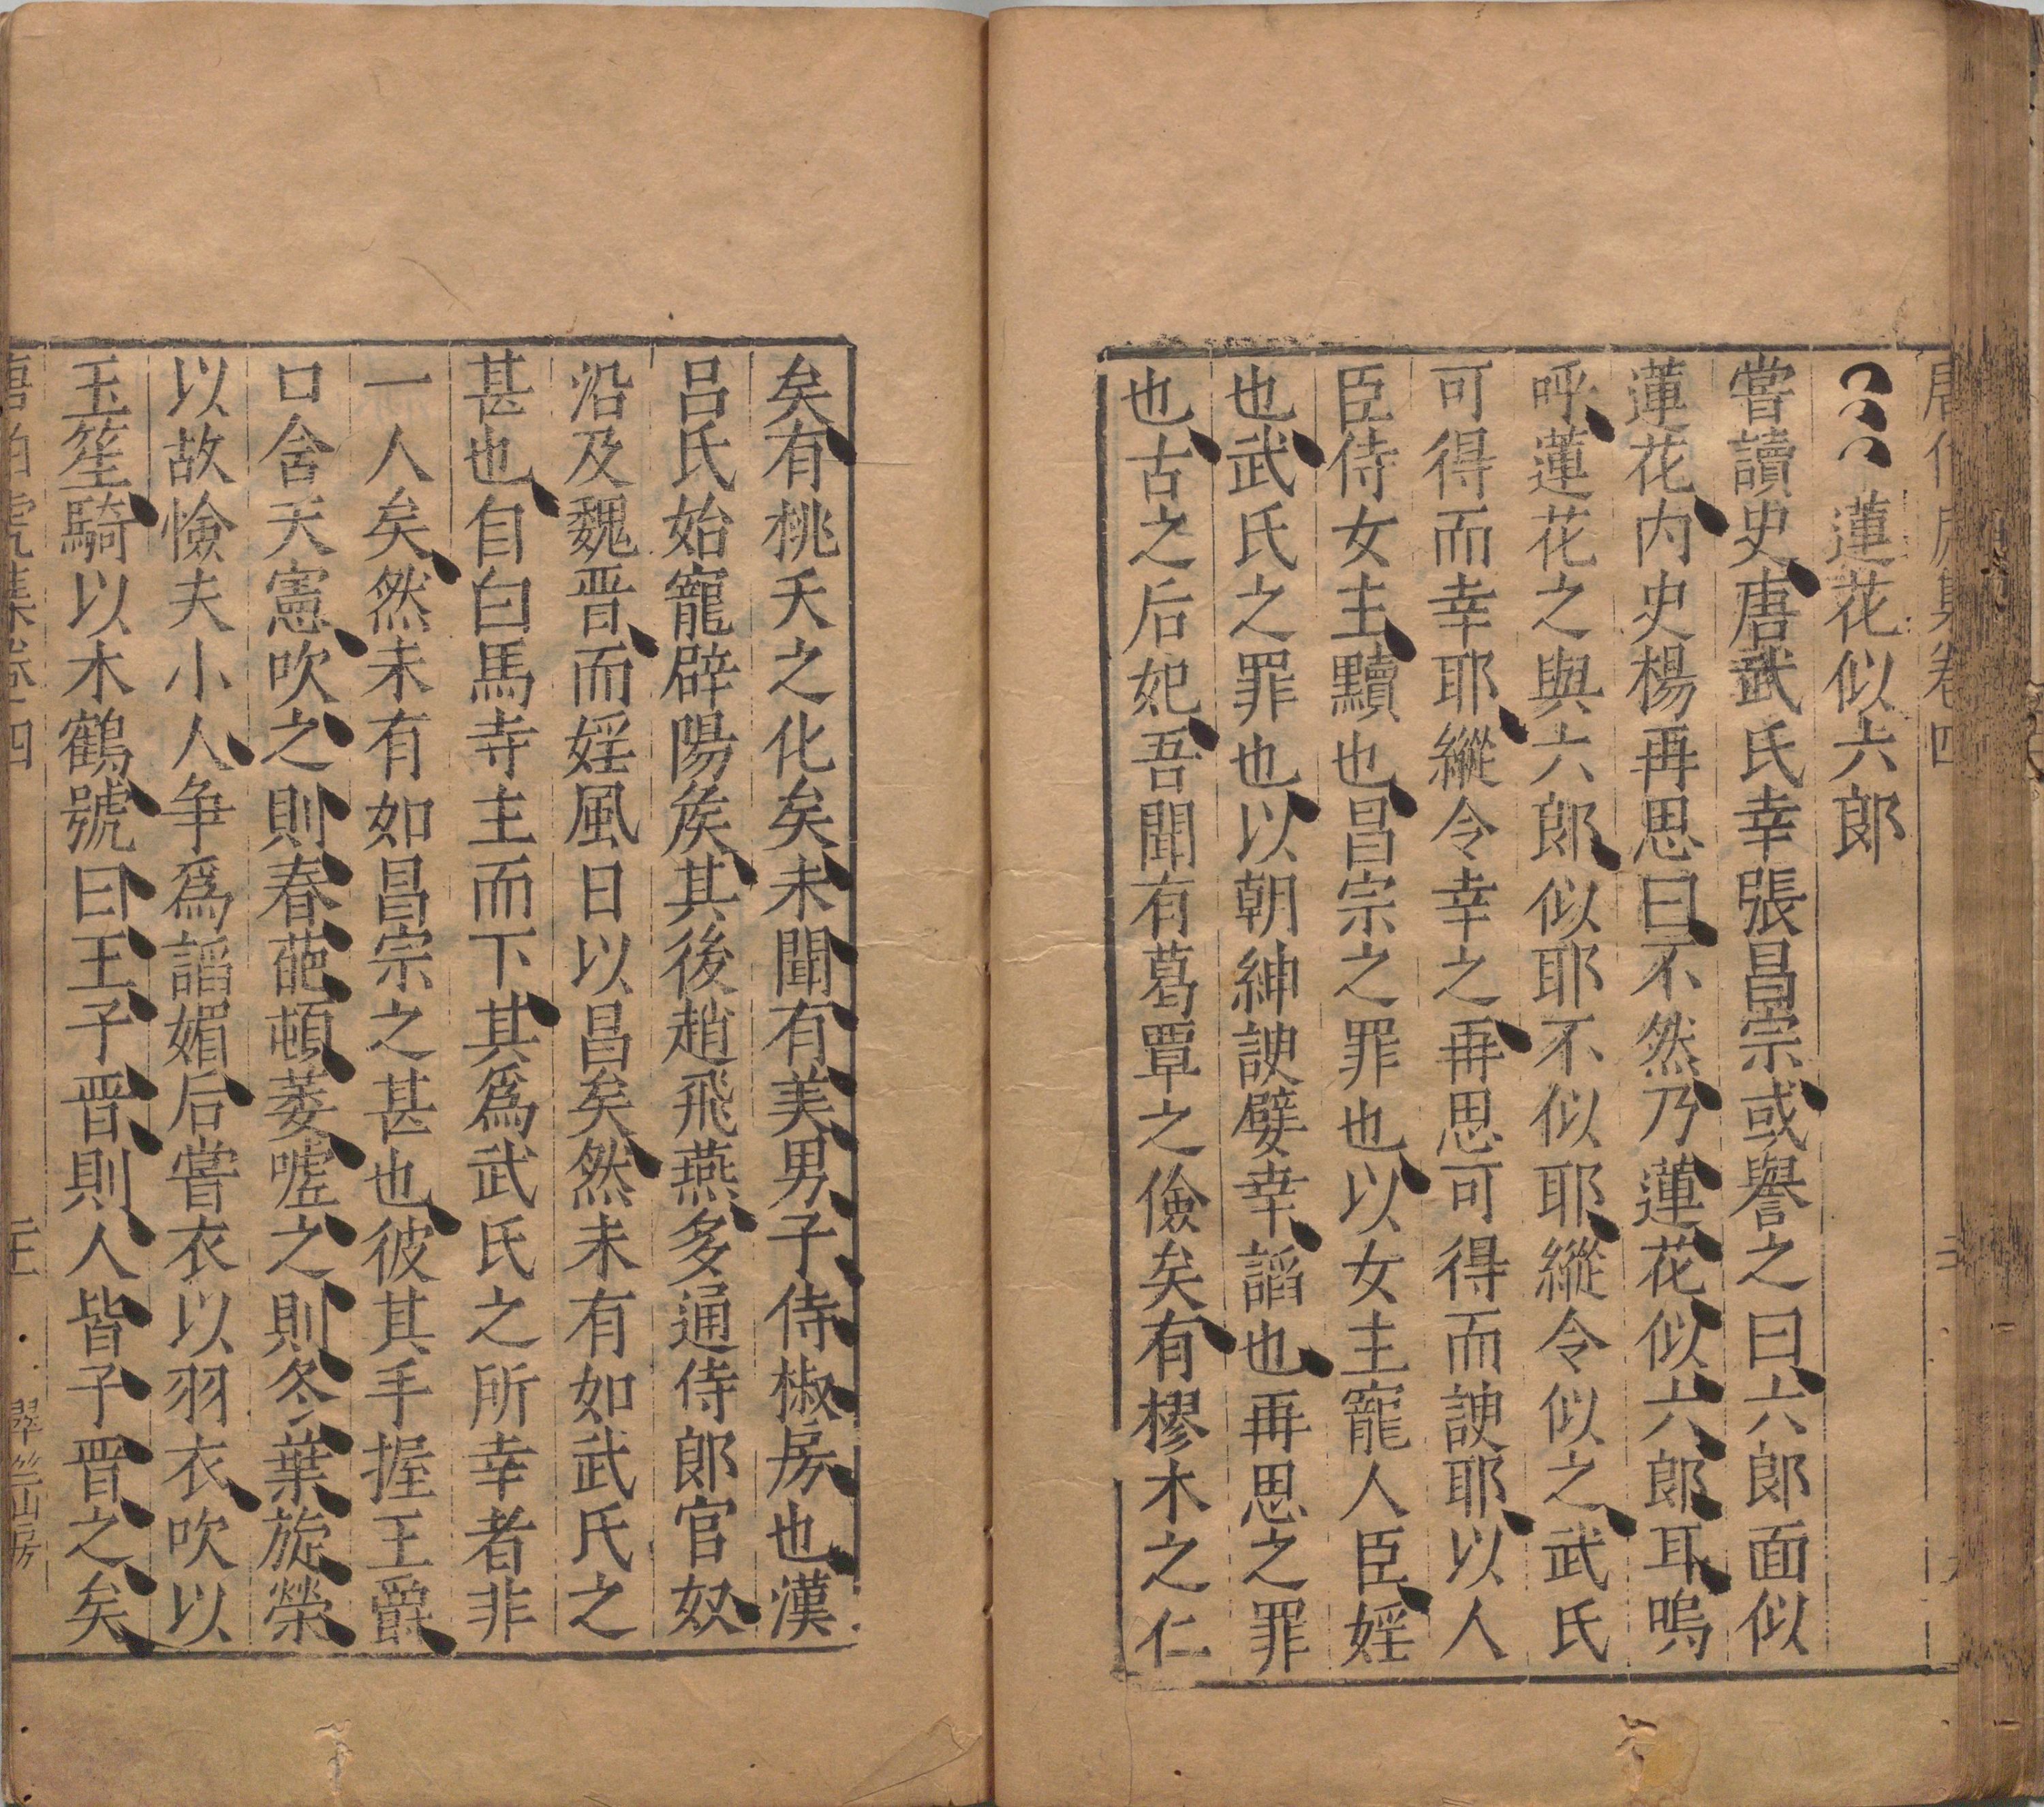 蓮花似六郎
嘗讀史唐武氏幸張昌宗或譽之曰六郎面似
蓮花内史楊再思曰不然乃蓮花似六郎耳嗚
呼蓮花之與六郎似耶不似耶縱令似之武氏
可得而幸耶縱令幸之再思可得而諛耶以人
臣侍女主黷也昌宗之罪也以女主寵人臣婬
也武氏之罪也以朝紳諛嬖幸謟也再思之罪
也古之后妃吾聞有葛覃之儉矣有樛木之仁
矣有桃夭之化矣未聞有美男子侍椒房也漢
吕氏始寵辟陽矦其後趙飛燕多通侍郎官奴
沿及魏晋而婬風日以昌矣然未有如武氏之
甚也自白馬寺主而下其爲武氏之所幸者非
一人矣然未有如昌宗之甚也彼其手握王爵
口含天憲吹之則春葩頓萎噓之則冬葉旋榮
以故憸夫小人争爲謟媚后嘗衣以羽衣吹以
玉笙騎以木鶴號曰王子晋則人皆子晋之矣
唐伯虎集卷四 二十 翠竺山房